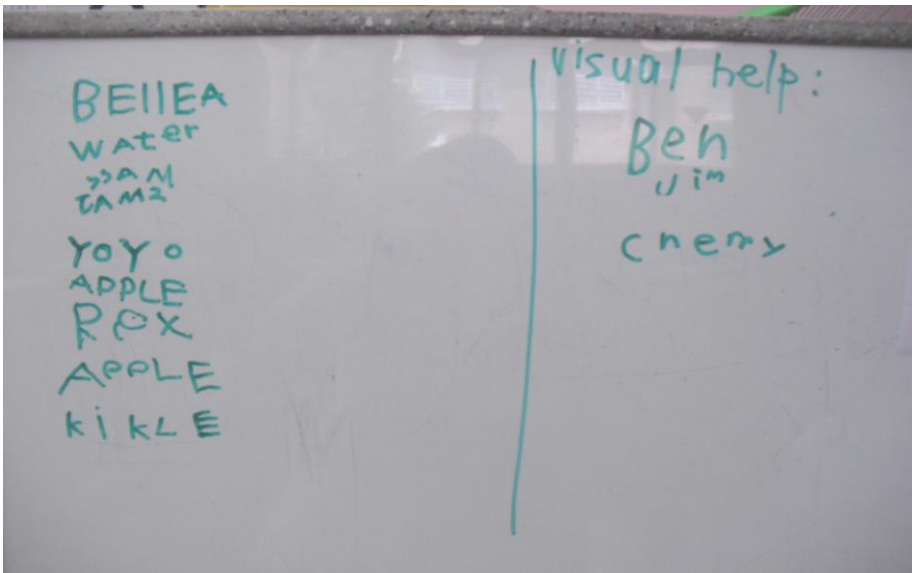 BEllEA
WAter
JAM2
YoYo
APPLE
Rex
APPLE
kikLE
visual help:
Ben
Jim
cnemy